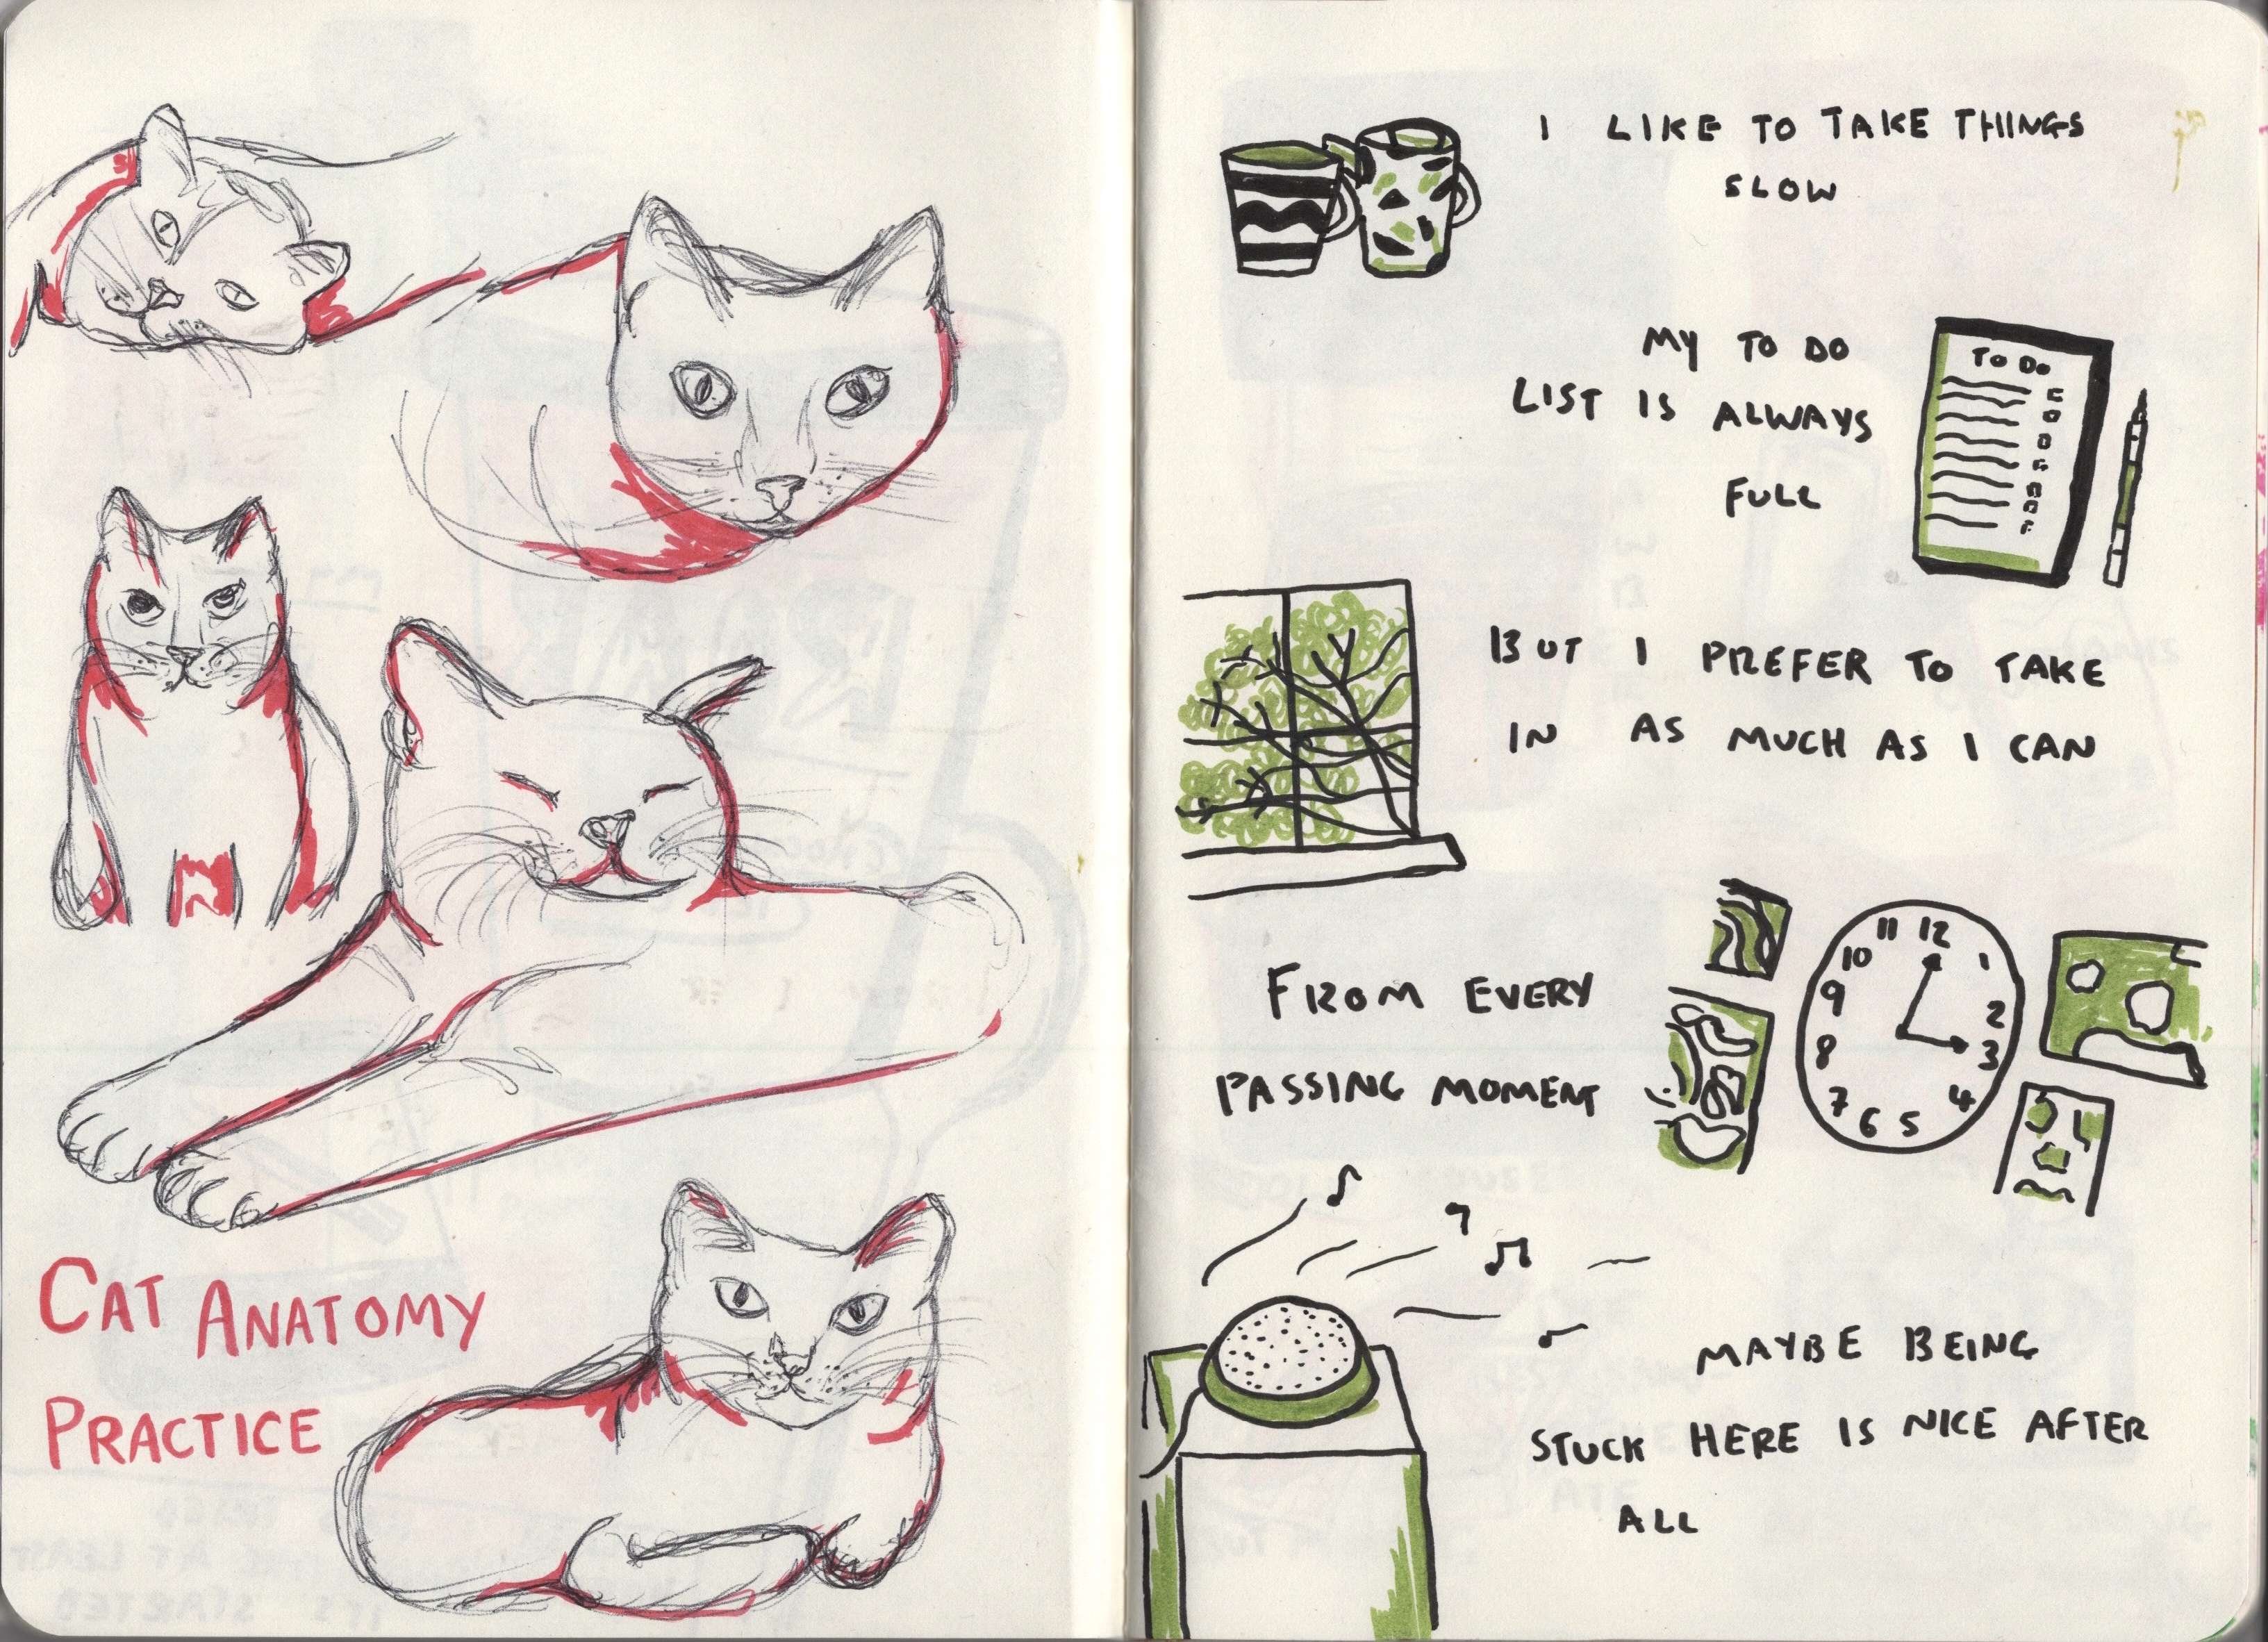 CAT ANATOMY
PRACTICE
I LIKE TO TAKE THINGS
SLOW
MY TO DO
LIST IS ALWAYS
FULL
TO DO
BUT I PREFER TO TAKE
IN AS MUCH AS I CAN
FROM EVERY
PASSING MOMENT
11 12 1
10 2
9 3
8 4
7 6 5
MAYBE BEING
STUCK HERE IS NICE AFTER
ALL